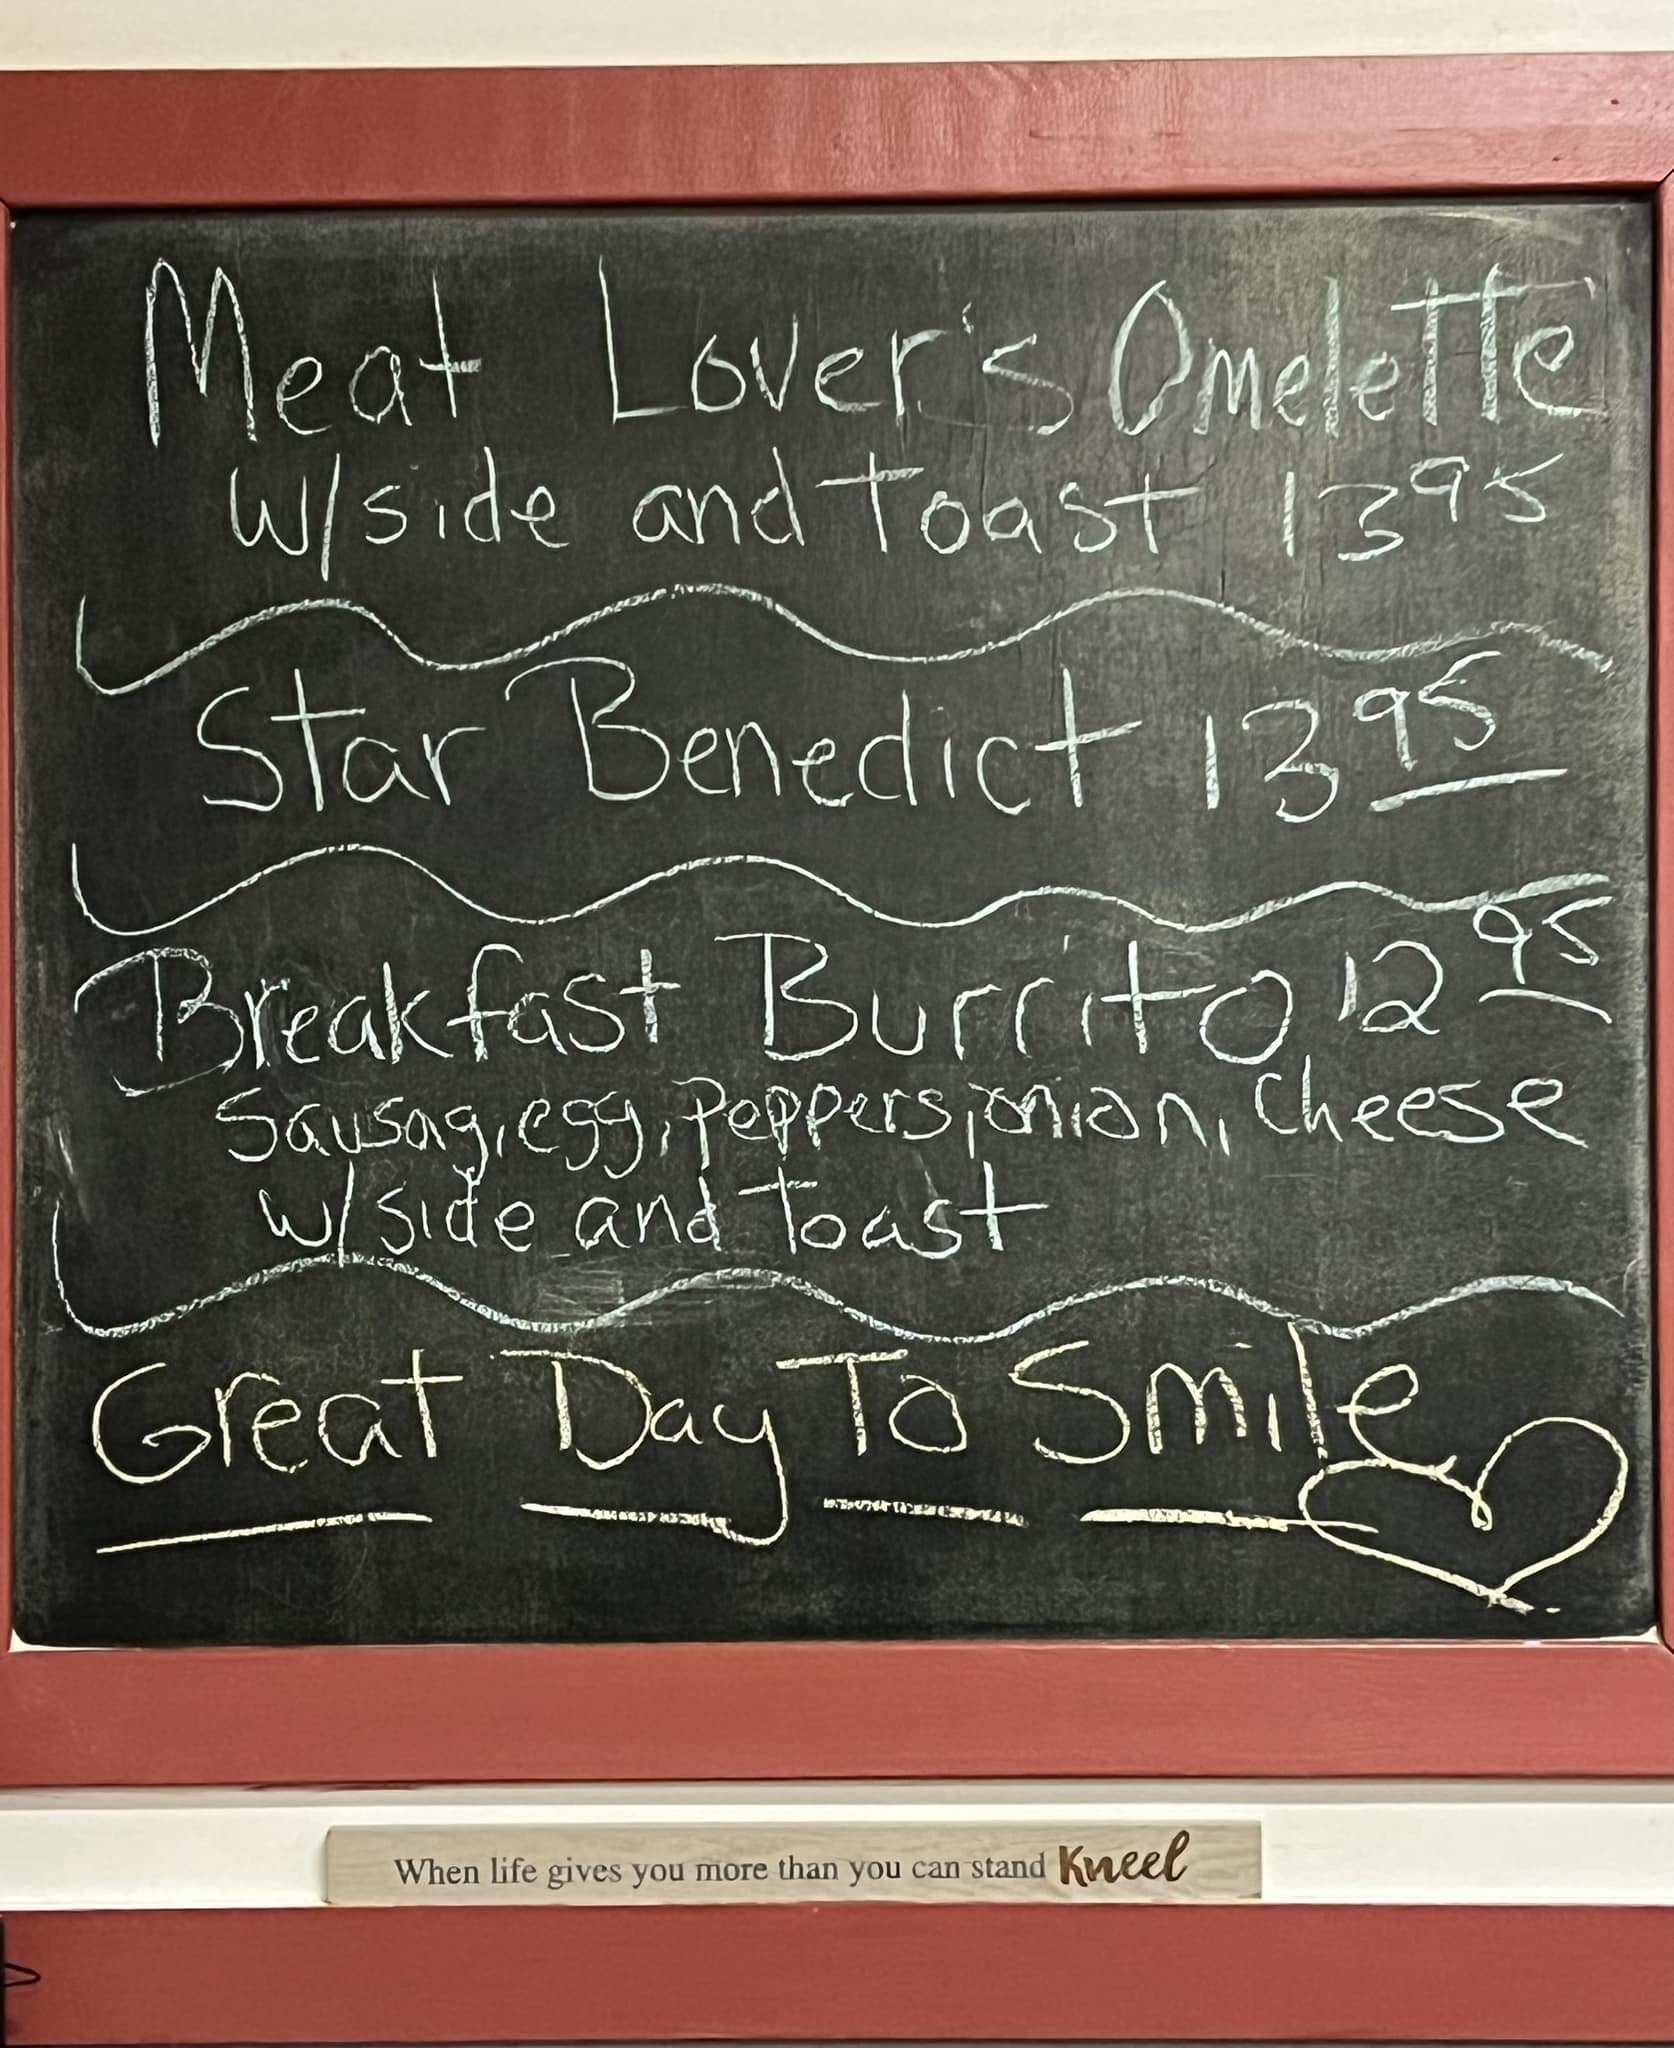 Meat Lover's Omelette
w/side and toast 13 95
Star Benedict 13 95
Breakfast Burrito 12 95
Sausag, egg, peppers, onion, cheese
w/side and toast
Great Day To Smile
When life gives you more than you can stand Kneel